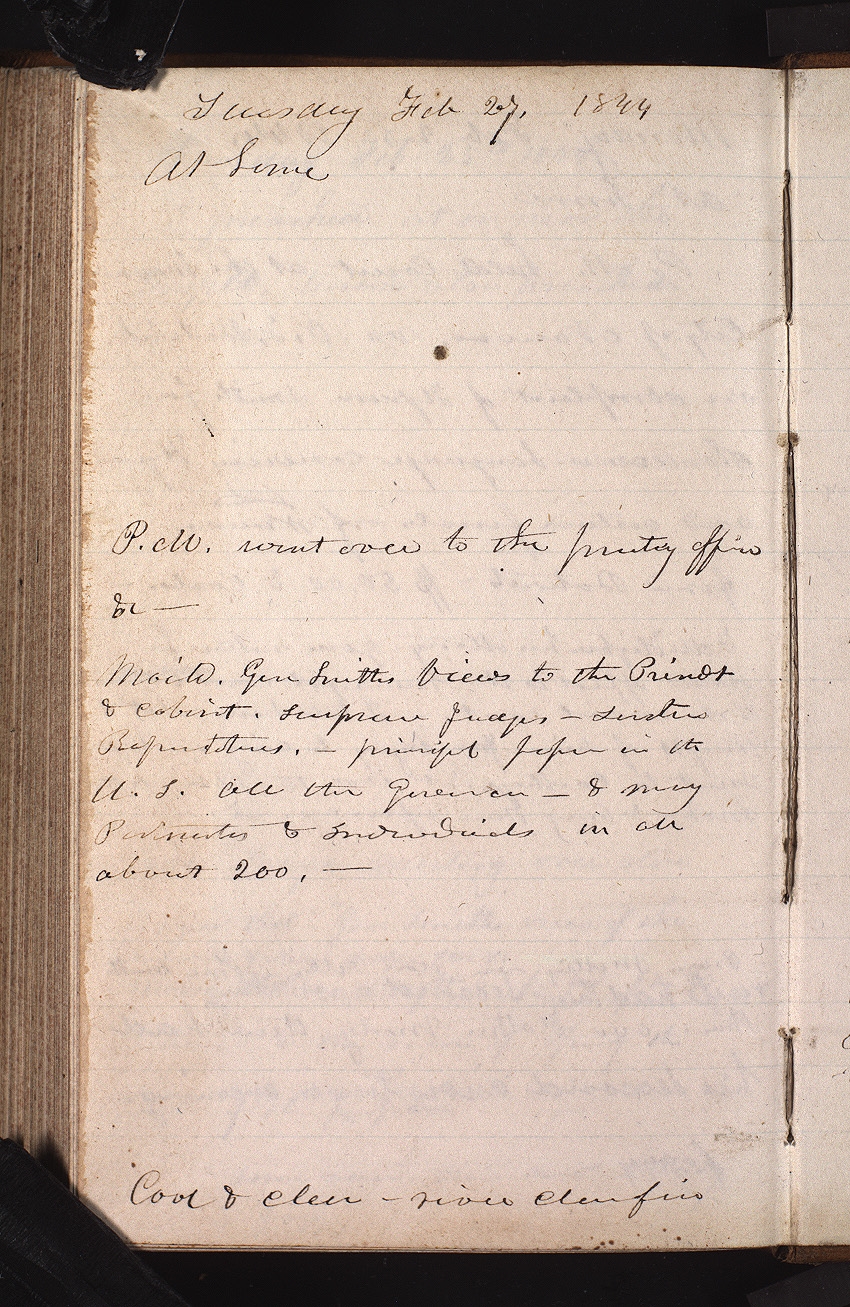 Tuesday Feb 27, 1844
At home
P.M. went over to the printing office
&c —
Mailed. Gen Smiths Views to the Presidt
& cabinet. Supreme Judges — Senators
Representatives. — principl papers in the
U. S. all the Governers — & many
Postmasters & individuals in all
about 200. —
Cool & clear — river clear from